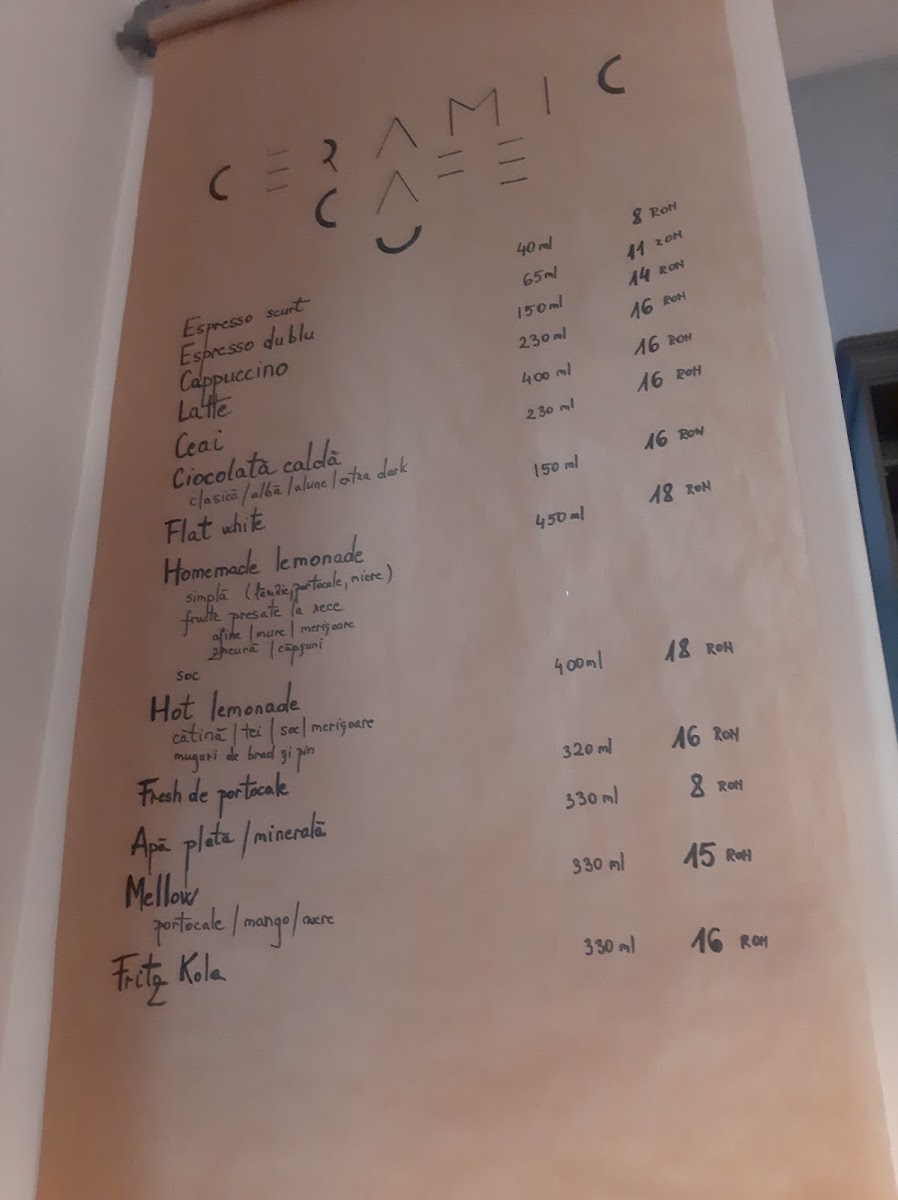 CERAMIC
CAFE
Espresso scurt 40 ml 8 RON
Espresso dublu 65 ml 11 RON
Cappuccino 150 ml 14 RON
Latte 230 ml 16 RON
Ceai 400 ml 16 RON
Ciocolată caldă 230 ml 16 RON
clasică / albă / alune / extra dark
Flat white 150 ml 16 RON
Homemade lemonade 450 ml 18 RON
simplă (lămâie, portocale, miere)
fructe presate la rece
afine / mure / merișoare
zmeură / căpșuni
soc
Hot lemonade 400 ml 18 RON
cătină / tei / soc / merișoare
muguri de brad și pin
Fresh de portocale 320 ml 16 RON
Apă plată / minerală 330 ml 8 RON
Mellow 330 ml 15 RON
portocale / mango / mere
Fritz Kola 330 ml 16 RON